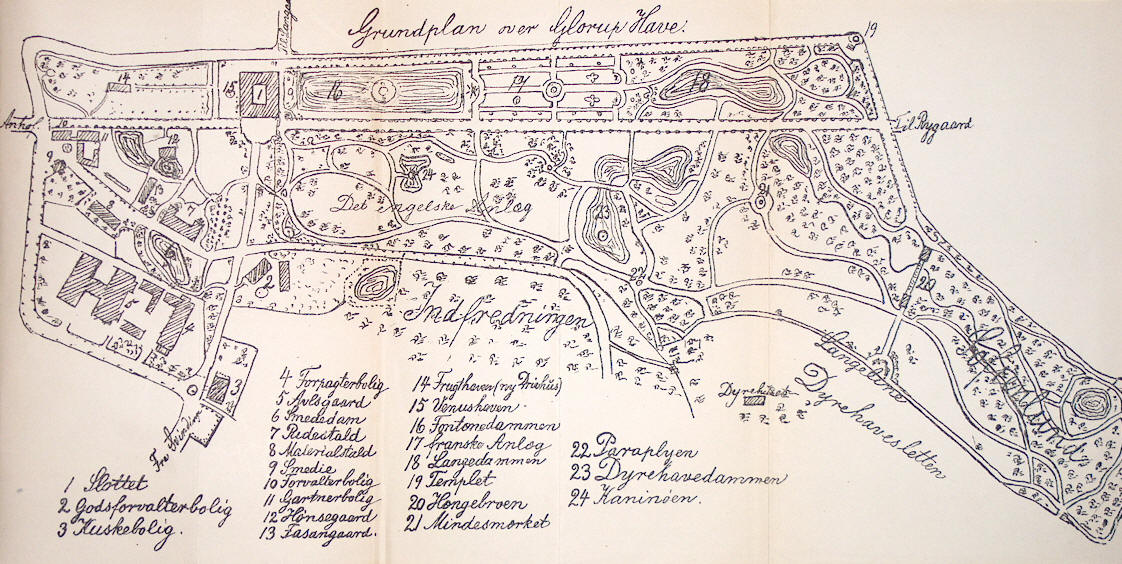 Grundplan over Glorup Have.
19
14
15
1
16
17
18
Til Rygaard
10
11
12
9
8
7
24
Det engelske Anlæg
23
21
22
20
2
5
4
3
Indfredningen
Langelinie
Dyrehavesletten
4 Forpagterbolig
5 Avlsgaard
6 Smededam
7 Ridestald
8 Materialstald
9 Smedie
10 Forvalterbolig
11 Gartnerbolig
12 Hönsegaard
13 Fasangaard.
14 Frugthaven (ny Drivhus)
15 Venushaven
16 Fontænedammen
17 franske Anlæg
18 Langedammen
19 Templet
20 Hængebroen
21 Mindesmærket
22 Paraplyen
23 Dyrehavedammen
24 Kaninøen.
1 Slottet
2 Godsforvalterbolig
3 Kuskebolig.